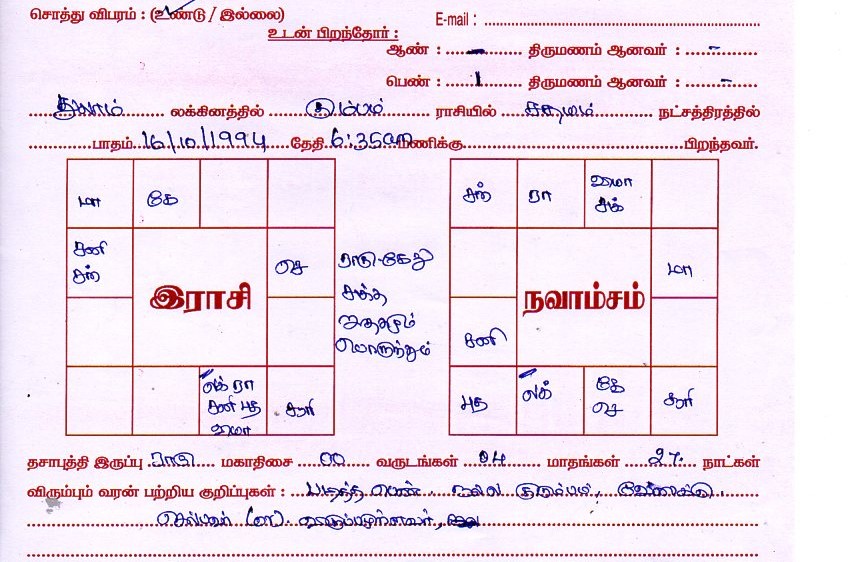 சொத்து விபரம் : (உண்டு / இல்லை)
E-mail :
உடன் பிறந்தோர் :
ஆண் : – திருமணம் ஆனவர் : –
பெண் : 1 திருமணம் ஆனவர் : –
துலாம் லக்கினத்தில் கும்பம் ராசியில் சதயம் நட்சத்திரத்தில்
பாதம் 16/10/1994 தேதி 6:35am மணிக்கு பிறந்தவர்.
மா கே
சனி
சந்
செ
இராசி
லக் ரா
சுரி
ராகு-கேது
சுத்த
ஜாதகமும்
பொருந்தும்
சந் ரா
சுக்
மா
நவாம்சம்
சனி
புத லக் கே
செ
சூரி
தசாபுத்தி இருப்பு ராகு மகாதிசை 00 வருடங்கள் 04 மாதங்கள் 27 நாட்கள்
விரும்பும் வரன் பற்றிய குறிப்புகள் : படித்த பெண், நல்ல குடும்பம்,